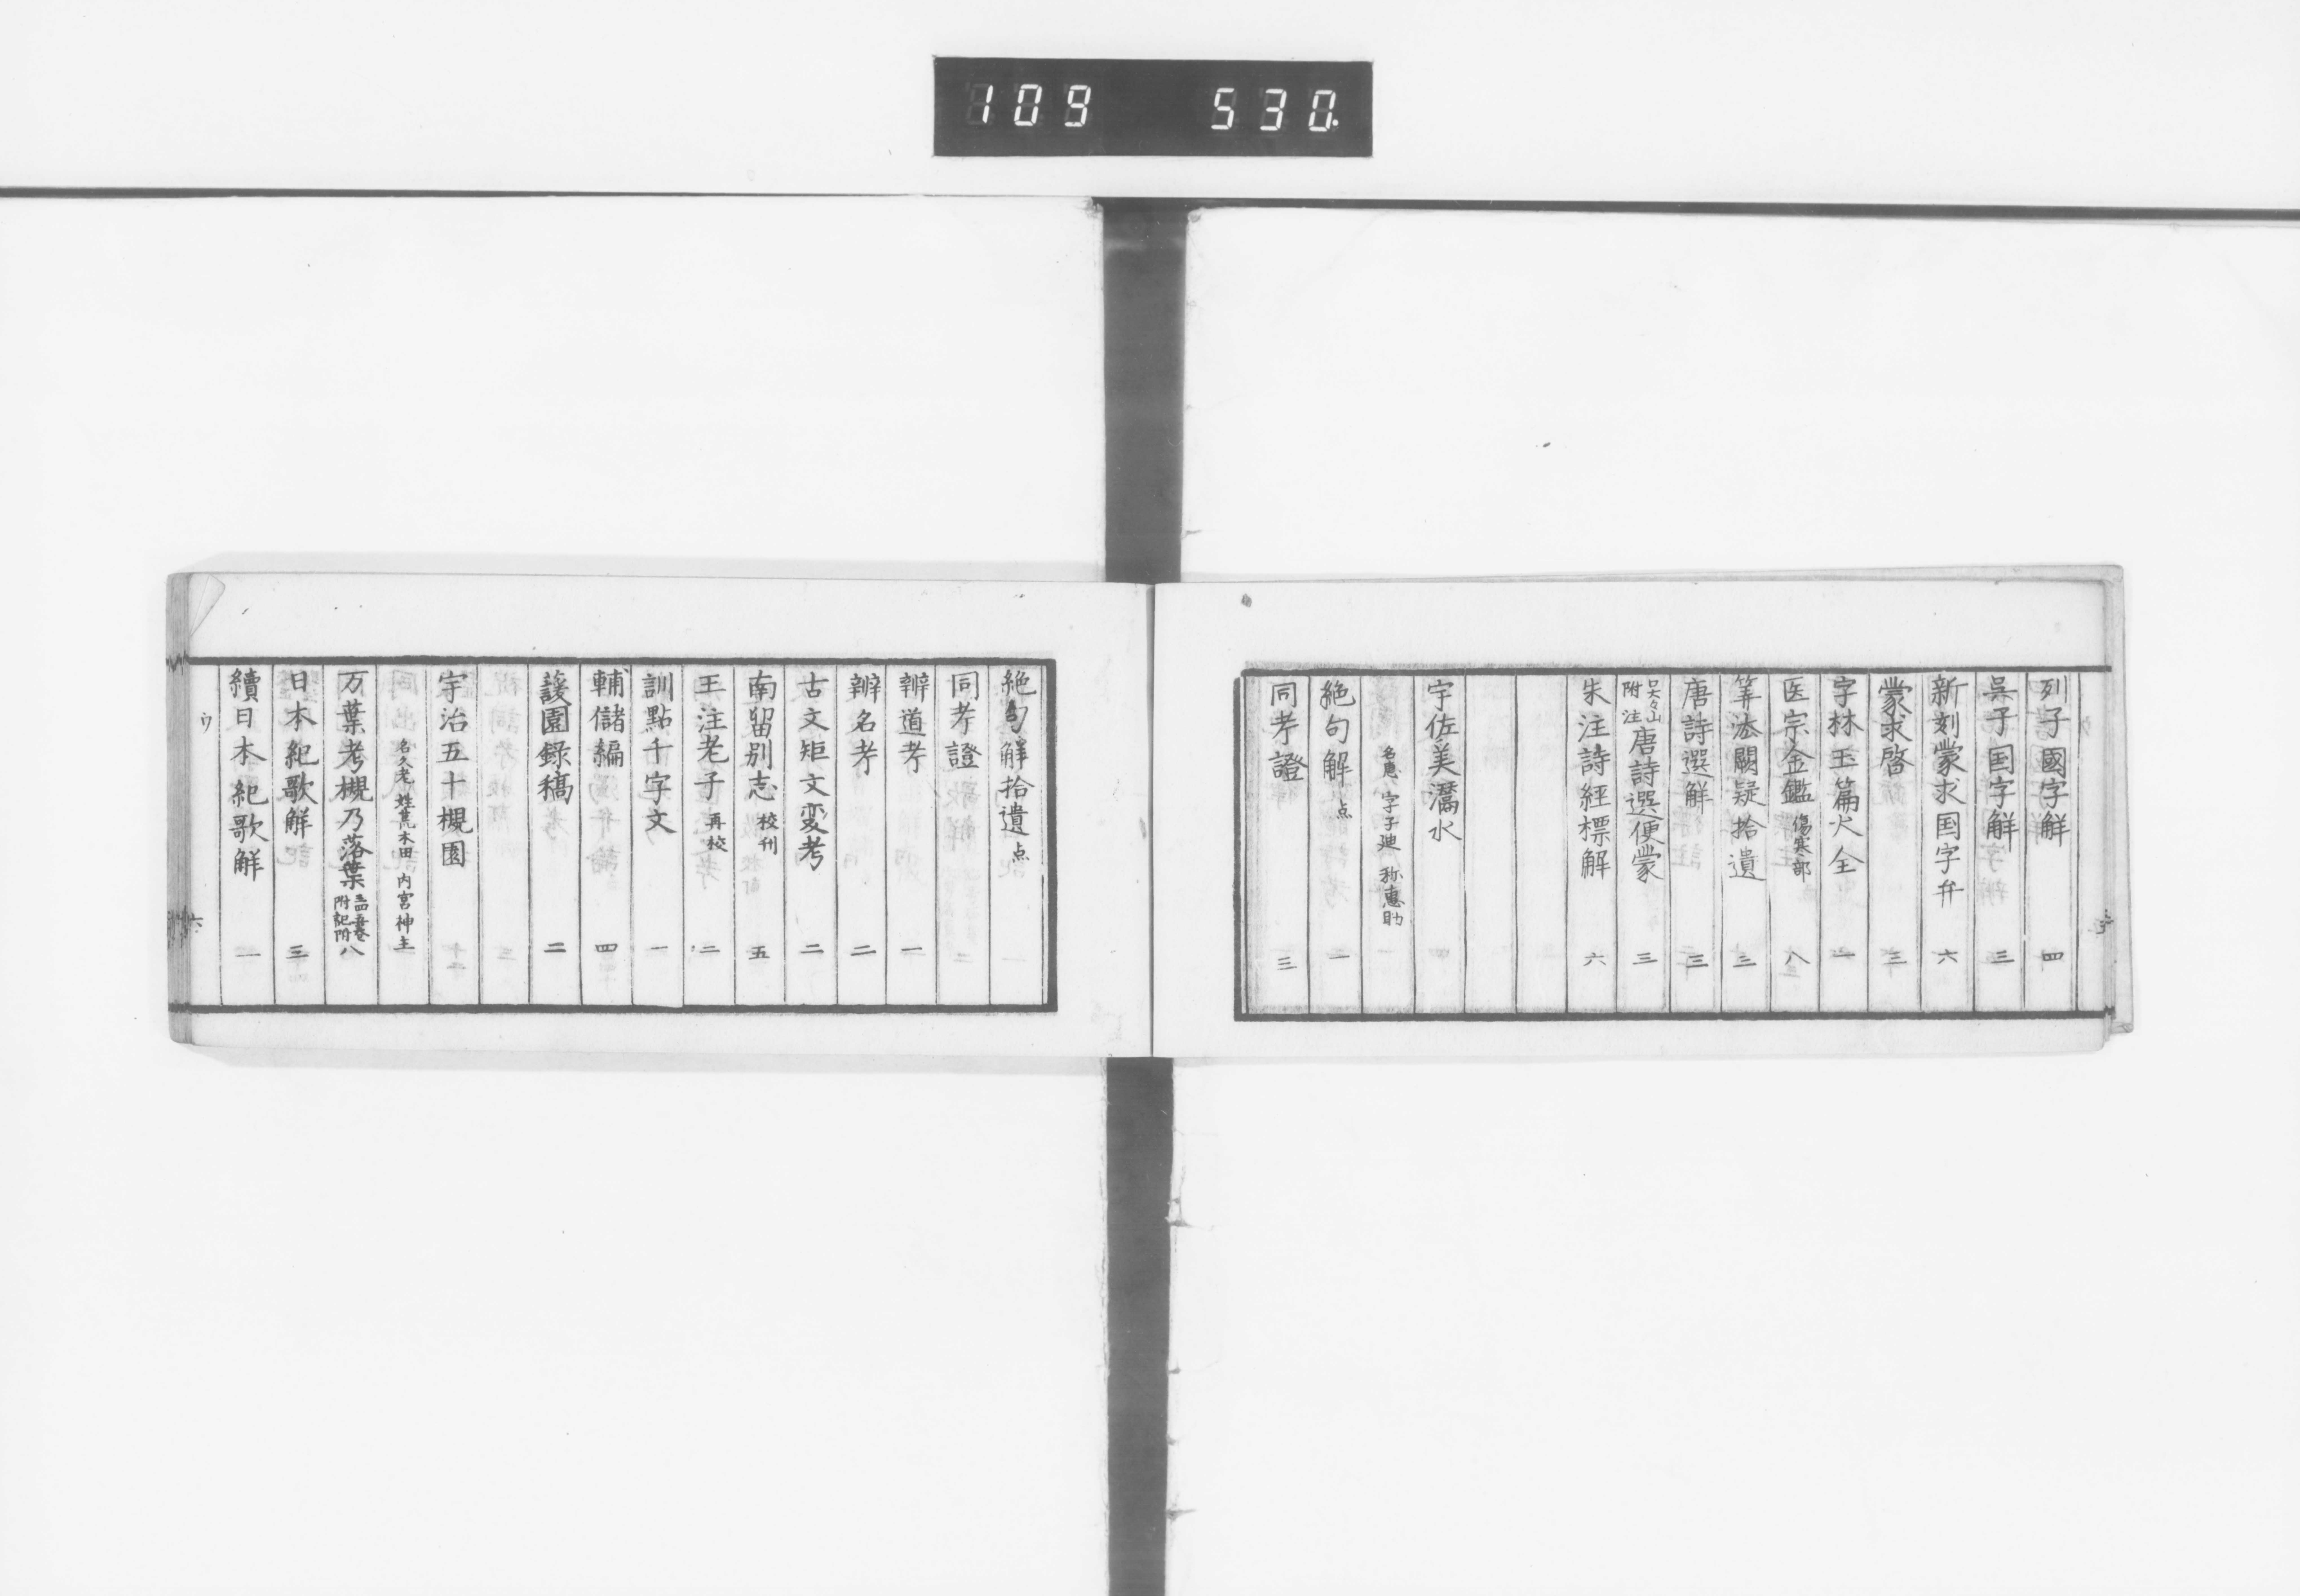 109 530.
列子國字解 四
呉子国字解 三
新刻蒙求国字弁 六
蒙求啓 三
字林玉篇大全 一
医宗金鑑 傷寒部 八
筭法闕疑拾遺 三
唐詩選解 三
呉大山附注 唐詩選便蒙 三
朱注詩經標解 六
宇佐美灊水
名惠 字子廸 称惠助
絶句解 点 一
同考證 三
絶句解拾遺 点
同考證
辨道考 一
辨名考 二
古文矩文変考 二
南留別志 校刊 五
王注老子 再校 二
訓點千字文 一
輔儲編 四
蘐園録稿 二
宇治五十槻園
名久老 姓荒木田 内宮神主
万葉考槻乃落葉 附記附 八
日本紀歌解 三
續日本紀歌解 一
ウ
六